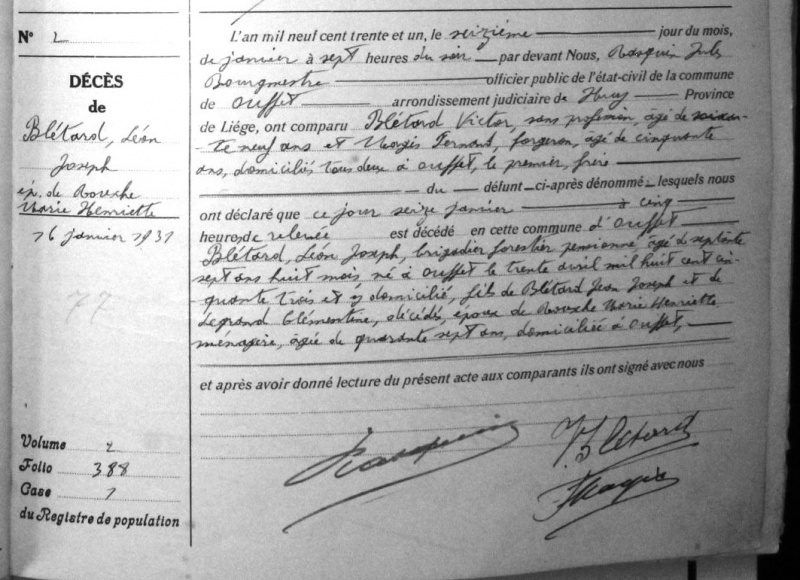 N° 2
DÉCÈS
de
Blétard, Léon
Joseph
ép. de Roesche
Marie Henriette
16 janvier 1931
77
Volume 2
Folio 388
Case 1
du Registre de population
L'an mil neuf cent trente et un, le seizième jour du mois,
de janvier à sept heures du soir par devant Nous, Rasquin Jules
Bourgmestre officier public de l'état-civil de la commune
de Ouffet arrondissement judiciaire de Huy Province
de Liége, ont comparu Blétard Victor, sans profession, âgé de soixan-
te neuf ans et Fernand, forgeron, âgé de cinquante
ans, domiciliés tous deux à Ouffet, le premier, frère
du défunt ci-après dénommé lesquels nous
ont déclaré que ce jour seize janvier à cinq
heures de relevée est décédé en cette commune d'Ouffet
Blétard, Léon Joseph, brigadier forestier pensionné âgé de septante
sept ans huit mois né à Ouffet le trente avril mil huit cent cin-
quante trois et y domicilié, fils de Blétard Jean Joseph et de
Legrand Clémentine, décédés, époux de Roesche Marie Henriette
ménagère, âgée de quarante sept ans, domiciliée à Ouffet,
et après avoir donné lecture du présent acte aux comparants ils ont signé avec nous
Rasquin
V Blétard